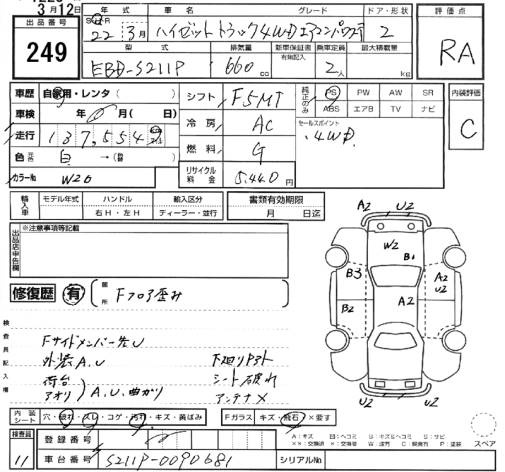 3月12日
出品番号
249
年式
車名
グレード
ドア・形状
評価点
22年3月
ハイゼットトラック4WDエアコンパワステ
2
RA
型式
排気量
新車保証書
有無記入
乗車定員
最大積載量
EBD-S211P
660cc
2人
kg
車歴
自家用・レンタ( )
シフト
F5MT
純正のみ
PS
PW
AW
SR
ABS
エアB
TV
ナビ
内装評価
C
車検
年 月( 日)
冷房
AC
セールスポイント
.4WD.
走行
137,554
燃料
G
色
白
カラーNo
W26
リサイクル料金
5,440円
輸入車
モデル年式
ハンドル
輸入区分
右H・左H
ディーラー・並行
書類有効期限
月 日迄
出品店申告欄
※注意事項等記載
A2
U2
W2
B1
B3
A2
U2
B2
A2
修復歴
有
箇所
Fフロア歪み
検査員記入欄
Fサイドメンバー先U
外装A.U
荷台
アオリ
A.U.曲がり
下廻りサビ
シート破れ
アンテナ×
U2
U2
内装シート
穴・破れ・スレ・コゲ・汚れ・キズ・黄ばみ
Fガラス
キズ・飛石・×要す
スペア
検査員
11
登録番号
車台番号
S211P-0090681
シリアルNo